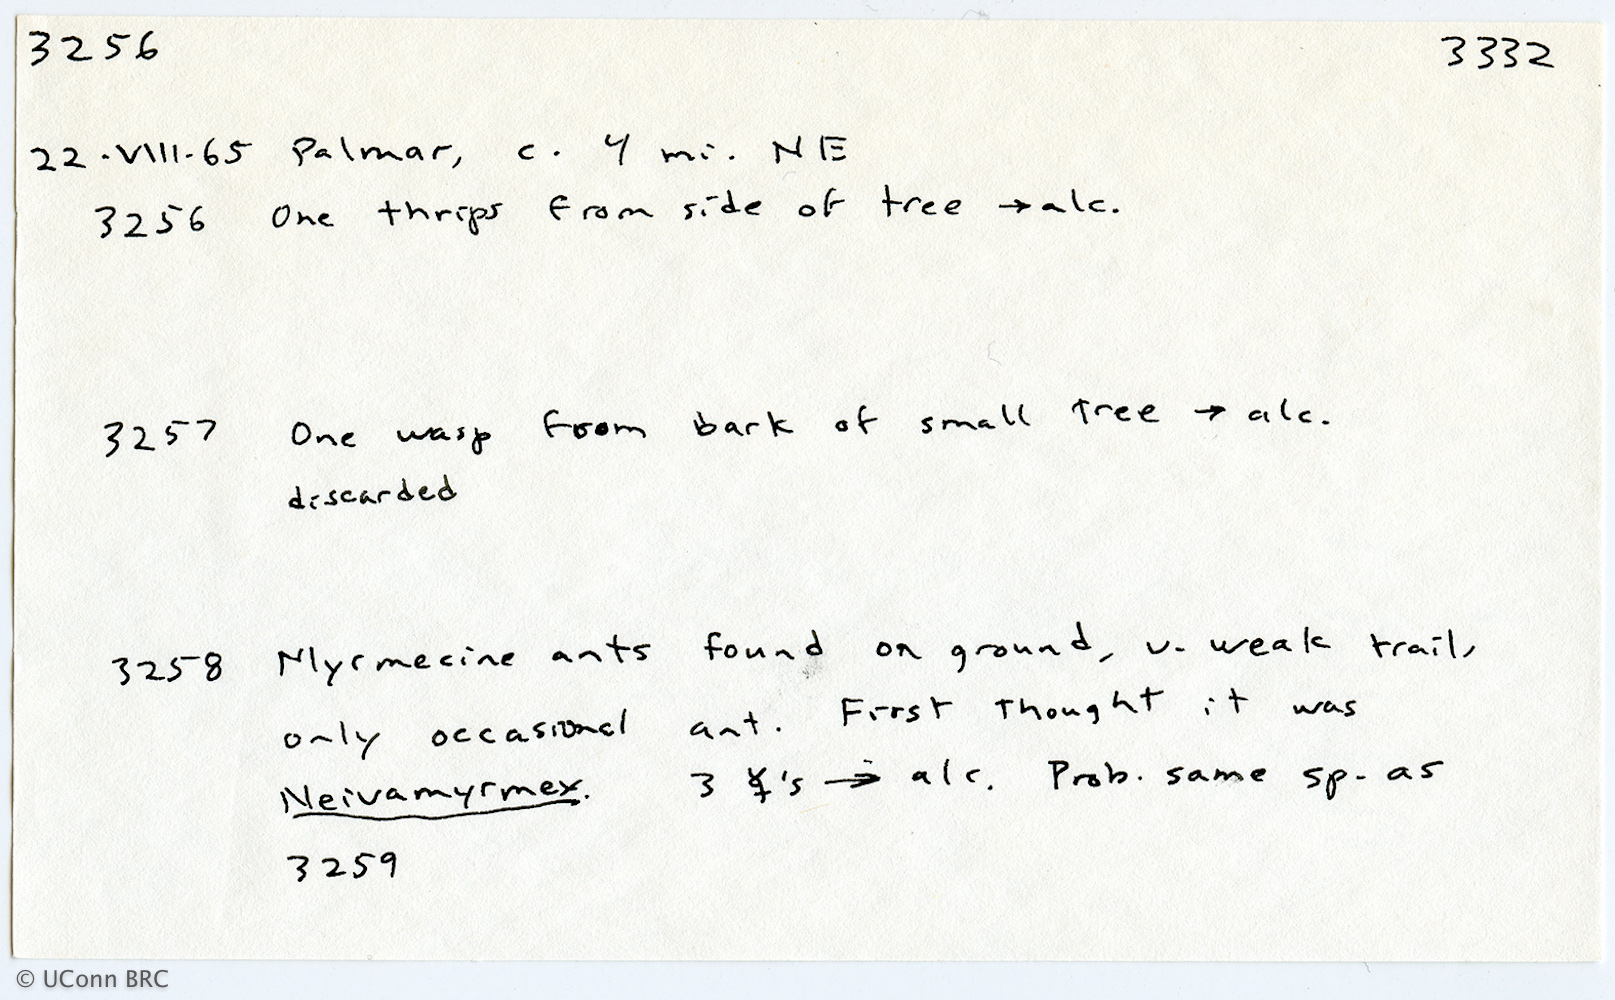 3256 3332
22.VIII.65 Palmar, c. 4 mi. NE
3256 One thrips from side of tree → alc.
3257 One wasp from bark of small tree → alc.
discarded
3258 Myrmecine ants found on ground, v. weak trail,
only occasional ant. First thought it was
Neivamyrmex. 3 ☿'s → alc. Prob. same sp. as
3259
© UConn BRC